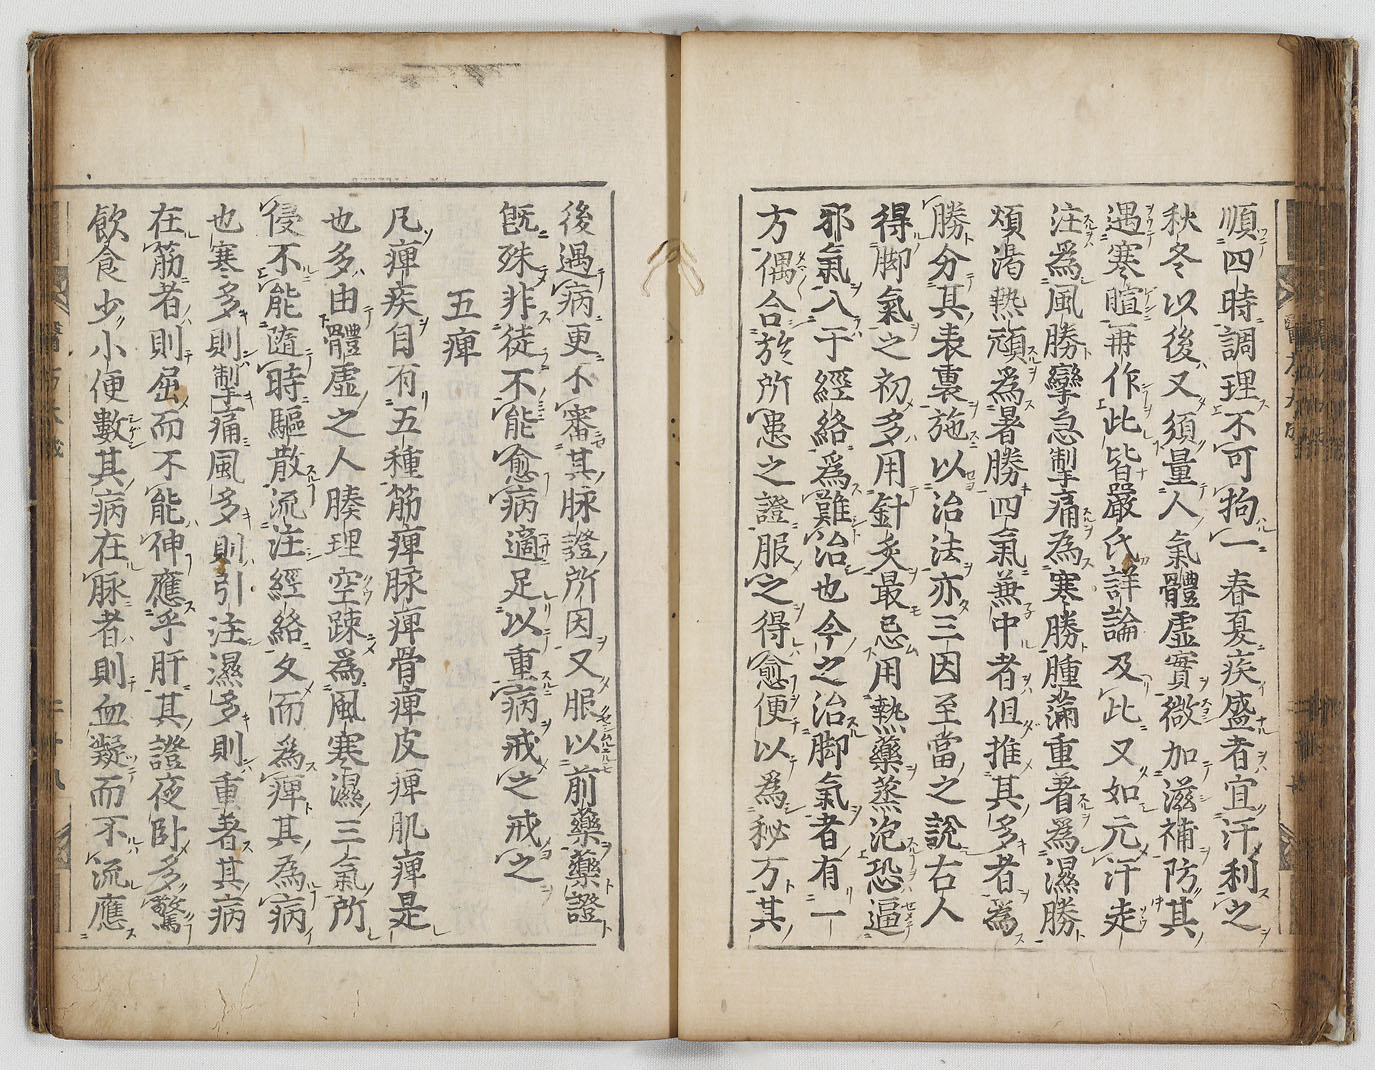 順四時調理不可拘一春夏疾盛者宜汗利之
秋冬以後又須量人氣體虛實微加滋補防其
遇寒暄再作此皆嚴氏詳論及此又如元汗走
注爲風勝攣急掣痛為寒勝腫滿重著爲濕勝
煩渴熱頑爲暑勝四氣兼中者但推其多者為
勝分其表裏施以治法亦三因至當之說右人
得脚氣之初多用針灸最忌用熱藥蒸泡恐逼
邪氣入于經絡爲難治也今之治脚氣者有一
方偶合於所患之證服之得愈便以爲秘方其
後遇病更不審其脉證所因又服以前藥藥證
旣殊非徒不能愈病適足以重病戒之戒之
五痺
凡痺疾目有五種筋痺脉痺骨痺皮痺肌痺是
也多由體虛之人腠理空疎爲風寒濕三氣所
侵不能隨時驅散流注經絡久而為痺其為病
也寒多則掣痛風多則引注濕多則重著其病
在筋者則屈而不能伸應乎肝其證夜卧多驚
飲食少小便數其病在脉者則血凝而不流應